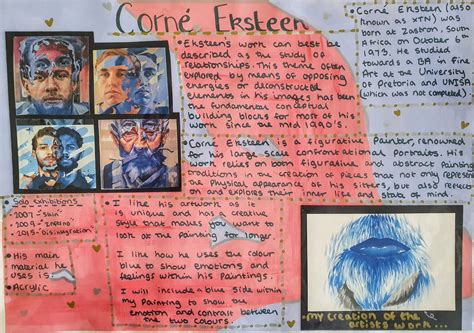 Corné Eksteen
• Eksteen's work can best be
described as the study of
relationships. This theme often
explored by means of opposing
energies or deconstructed
elements in his images has been
the fundamental conceptual
building blocks for most of his
work since the mid 1990's.
• Corné Eksteen (also
known as XTN) was
born at Zastron, South
Africa on October 6th
1973. He studied
toward a BA in Fine
Art at the University
of Pretoria and UNISA
(which was not completed)
• Corné Eksteen is a figurative Painter, renowned
for his large-scale confrontational portraits. His
work relies on both figurative and abstract Painting
traditions in the creation of pieces that not only represent
the physical appearance of his sitters, but also reflects
on and explores their inner life and state of mind.
Solo Exhibitions
• 2007 - "Skin"
• 2009 - "Inferno"
• 2015 - "Disintegration"
• His main
material he
uses is
• Acrylic
• I like his artwork as it
is unique and has a creative
style that makes you want to
look at the painting for longer.
• I like how he uses the colour
blue to show emotions and
feelings within his Paintings.
• I will include a blue side within
my Painting to show the
emotion and contrast between
the two colours.
my creation of the
artists work...